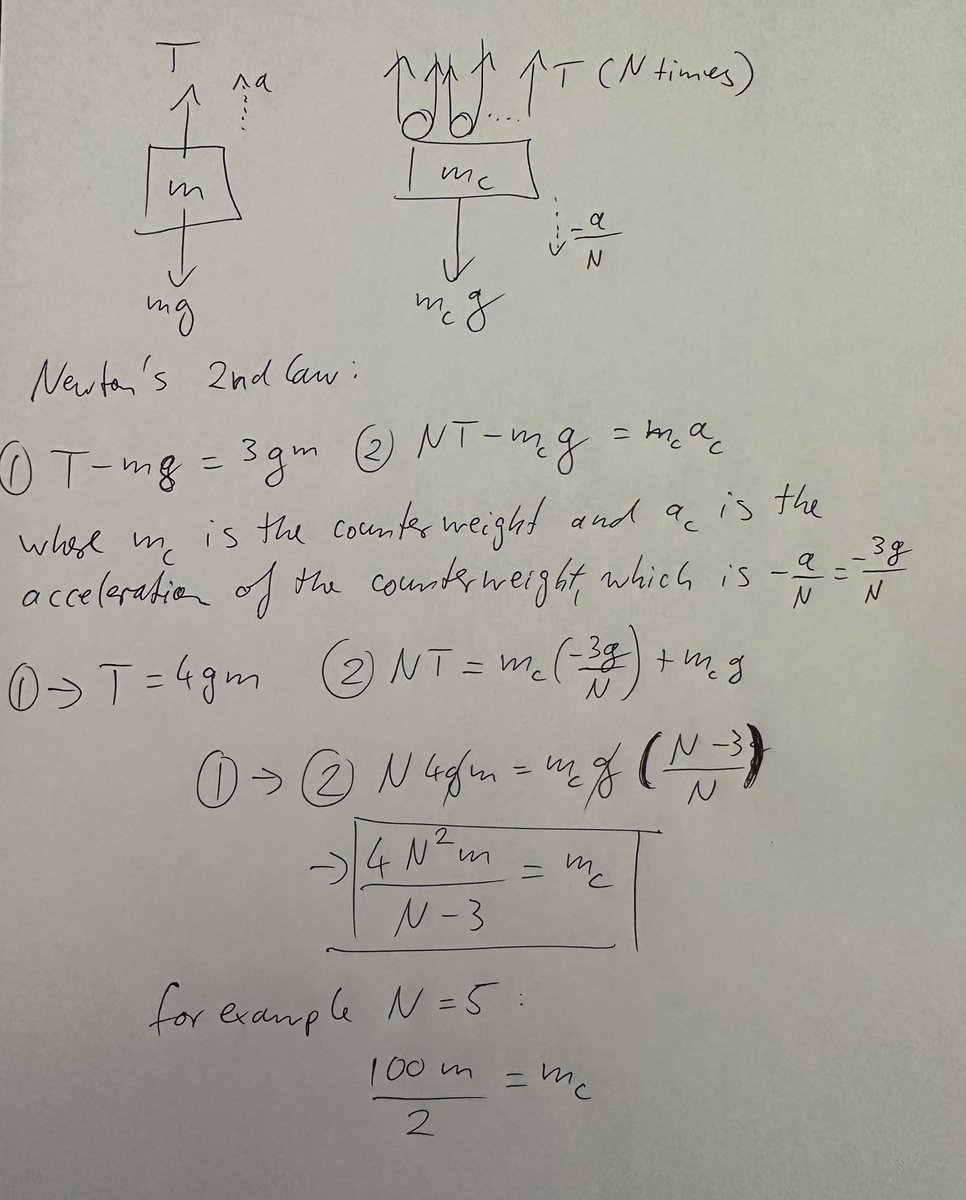 T
a
T (N times)
m
m_c
-a/N
mg
m_c g
Newton's 2nd law:
① T-mg = 3gm ② NT-m_c g = m_c a_c
where m_c is the counterweight and a_c is the
acceleration of the counterweight, which is -a/N = -3g/N
①→ T = 4gm ② NT = m_c(-3g/N) + m_c g
①→② N4gm = m_c g (N-3/N)
→ 4N²m/N-3 = m_c
for example N = 5:
100m/2 = m_c